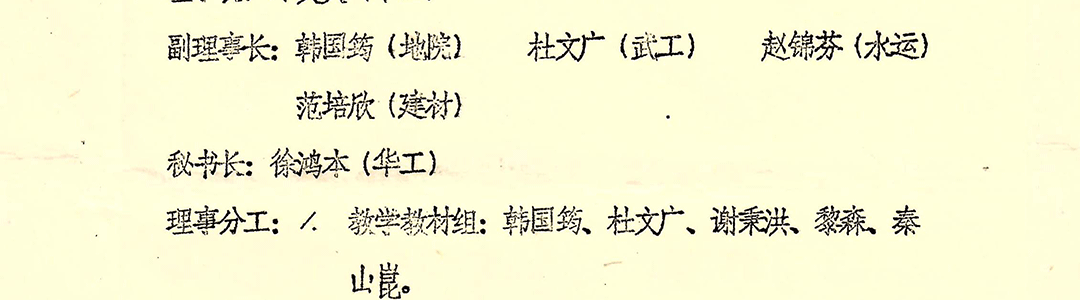 副理事长：韩国筠（地院） 杜文广（武工） 赵锦芬（水运）
范培欣（建材）
秘书长：徐鸿本（华工）
理事分工：1. 教学教材组：韩国筠、杜文广、谢秉洪、黎森、秦
山崑。